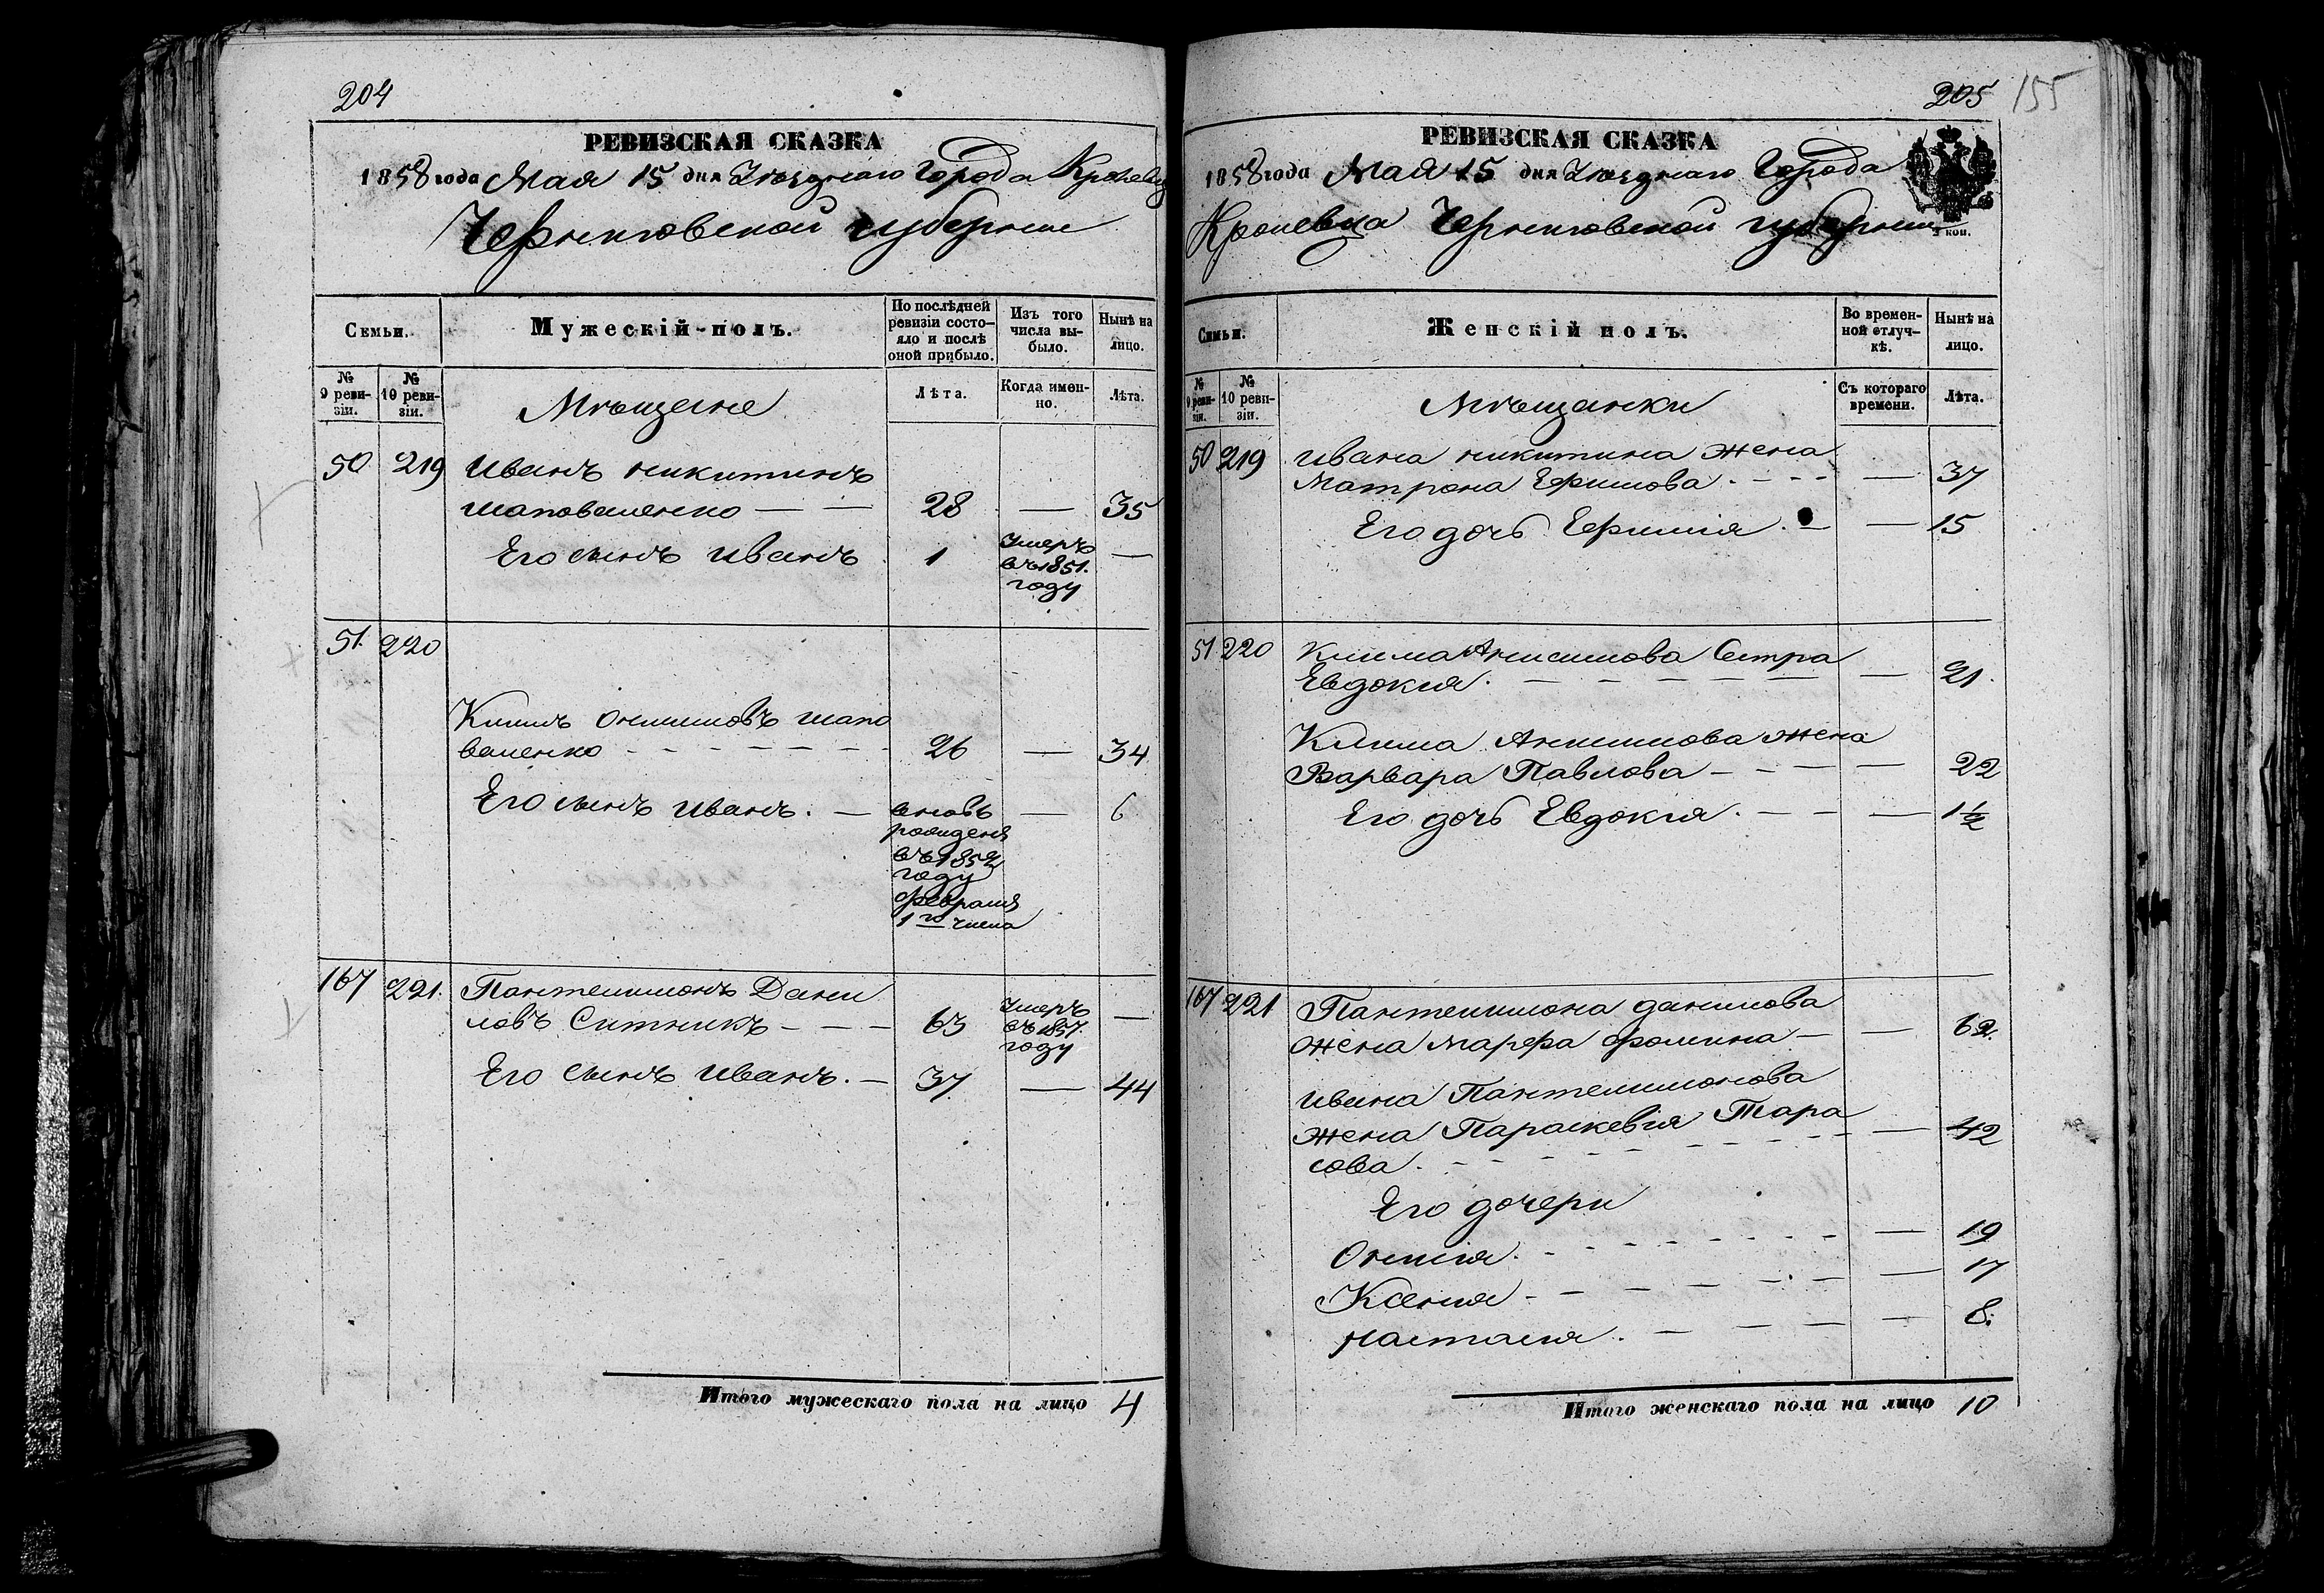 204
РЕВИЗСКАЯ СКАЗКА
1858 года Мая 15 дня Уѣзднаго Города Кролевца
Черниговской губернии
Семьи.
Мужескій-полъ.
По послѣдней ревизіи состо-
яло и послѣ оной прибыло.
Изъ того числа вы-
было.
Нынѣ на лицо.
№ 9 реви-
зіи.
№ 10 реви-
зіи.
Мѣщане
Лѣта.
Когда имен-
но.
Лѣта.
50 219 Иванъ никитинъ
шаповаленко — — 28 — 35
Его сынъ Иванъ 1 Умеръ —
въ 1851.
году
51. 220
Климъ Онисимовъ шапо
валенко - - - - - - - 26 — 34
Его сынъ Иванъ. — вновь — 6
рожденъ
въ 1852
году
февраля
1го числа
167 221. Пантелимонъ Дани
ловъ Ситникъ - — — 63 Умеръ —
въ 1857.
году
Его сынъ Иванъ. — 37 — 44
Итого мужескаго пола на лицо 4
205 155
РЕВИЗСКАЯ СКАЗКА
1858 года Мая 15 дня Уѣзднаго Города
Кролевца Черниговской губернии
коп.
Семьи.
Женскій полъ.
Во времен-
ной отлуч-
кѣ.
Нынѣ на лицо.
№ 9 реви-
зіи.
№ 10 реви-
зіи.
Мѣщанки
Съ котораго времени.
Лѣта.
50 219 Ивана никитина жена
Матрона Ефимова. - - - — 37
Его дочь Ефимия. — — 15
51 220 Клима Анисимова Сестра
Евдокия. — — — — — — 21.
Клима Анисимова жена
Варвара Павлова - - - — 22
Его дочь Евдокия. - — — — 1½
167 221 Пантелимона данилова
жена марфа фомина — — 62.
Ивана Пантелимонова
жена Параскевія Тара
сова. - - - - - — 42
Его дочери
Онисия. - - - - - - - — 19
Ксения - — — — — — 17
настасия. — — — — — 8.
Итого женскаго пола на лицо 10